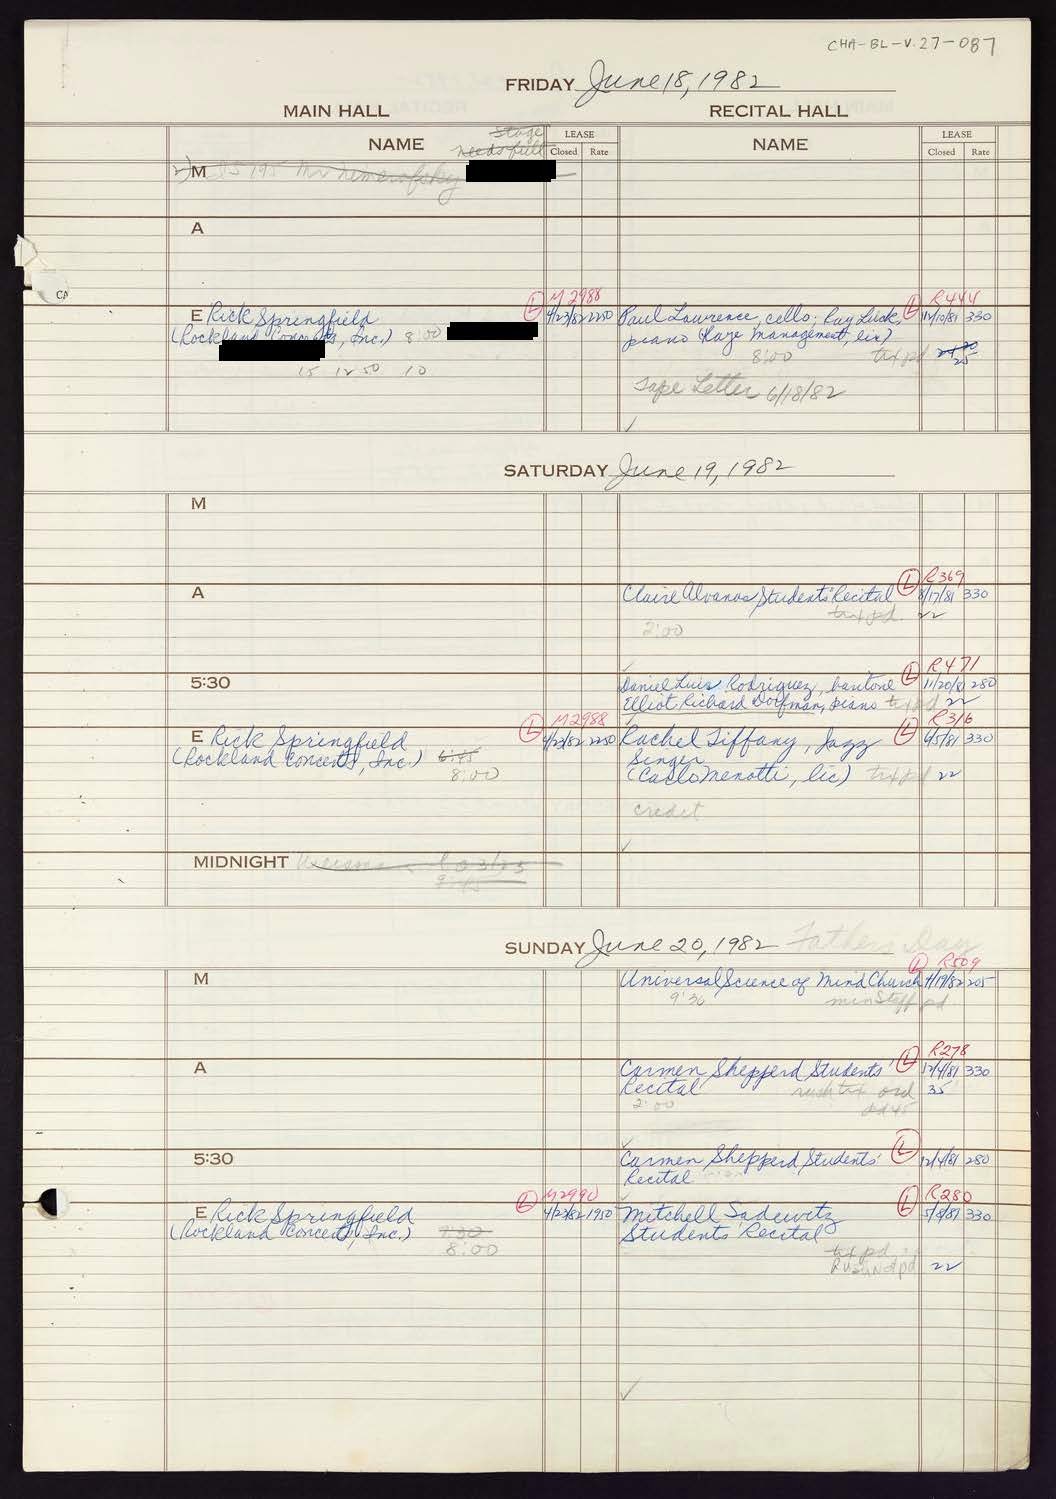 CHA-BL-V.27-087
FRIDAY June 18, 1982
MAIN HALL RECITAL HALL
NAME Stage needs full LEASE Closed Rate NAME LEASE Closed Rate
M
A
CA
M2988 L R444
E Rick Springfield 4/23/82 2250 Paul Lawrence, cello; Ray Luck, 330
(Rockland Concerts, Inc.) 8:00 piano (Raye Management, lic)
8:00 tax pd 25
15 12 50 10
Tape Letter 6/18/82
SATURDAY June 19, 1982
M
L R369
A Claire Alvanas Students' Recital 8/17/81 330
tax pd. 22
2:00
L R471
5:30 Daniel Luis Rodriguez, baritone 11/20/81 280
Elliot Richard Dorfman, piano tax pd 22
L M2988 L R316
E Rick Springfield 4/23/82 2250 Rachel Tiffany, Jazz 6/5/81 330
(Rockland Concerts, Inc.) 6:45 Singer
8:00 (Carlo Menotti, lic) tax pd 22
credit
MIDNIGHT
SUNDAY June 20, 1982 Fathers Day
L R509
M Universal Science of Mind Church 4/19/82 205
9:30 min Staff pd
L R278
A Carmen Shepperd Students' 12/4/81 330
Recital rush tax ord 35
2:00 pd 45
L
5:30 Carmen Shepperd Students' 12/4/81 280
Recital
L M2990 L R280
E Rick Springfield 4/23/82 1950 Mitchell Sadewitz 5/8/81 330
(Rockland Concerts, Inc.) 7:30 Students' Recital
8:00 tax pd
pd 22